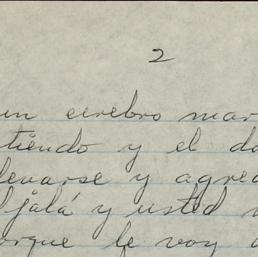 2
un cerebro mar
tiendo y el do
levarse y agre
jalá y usted
orque le voy a